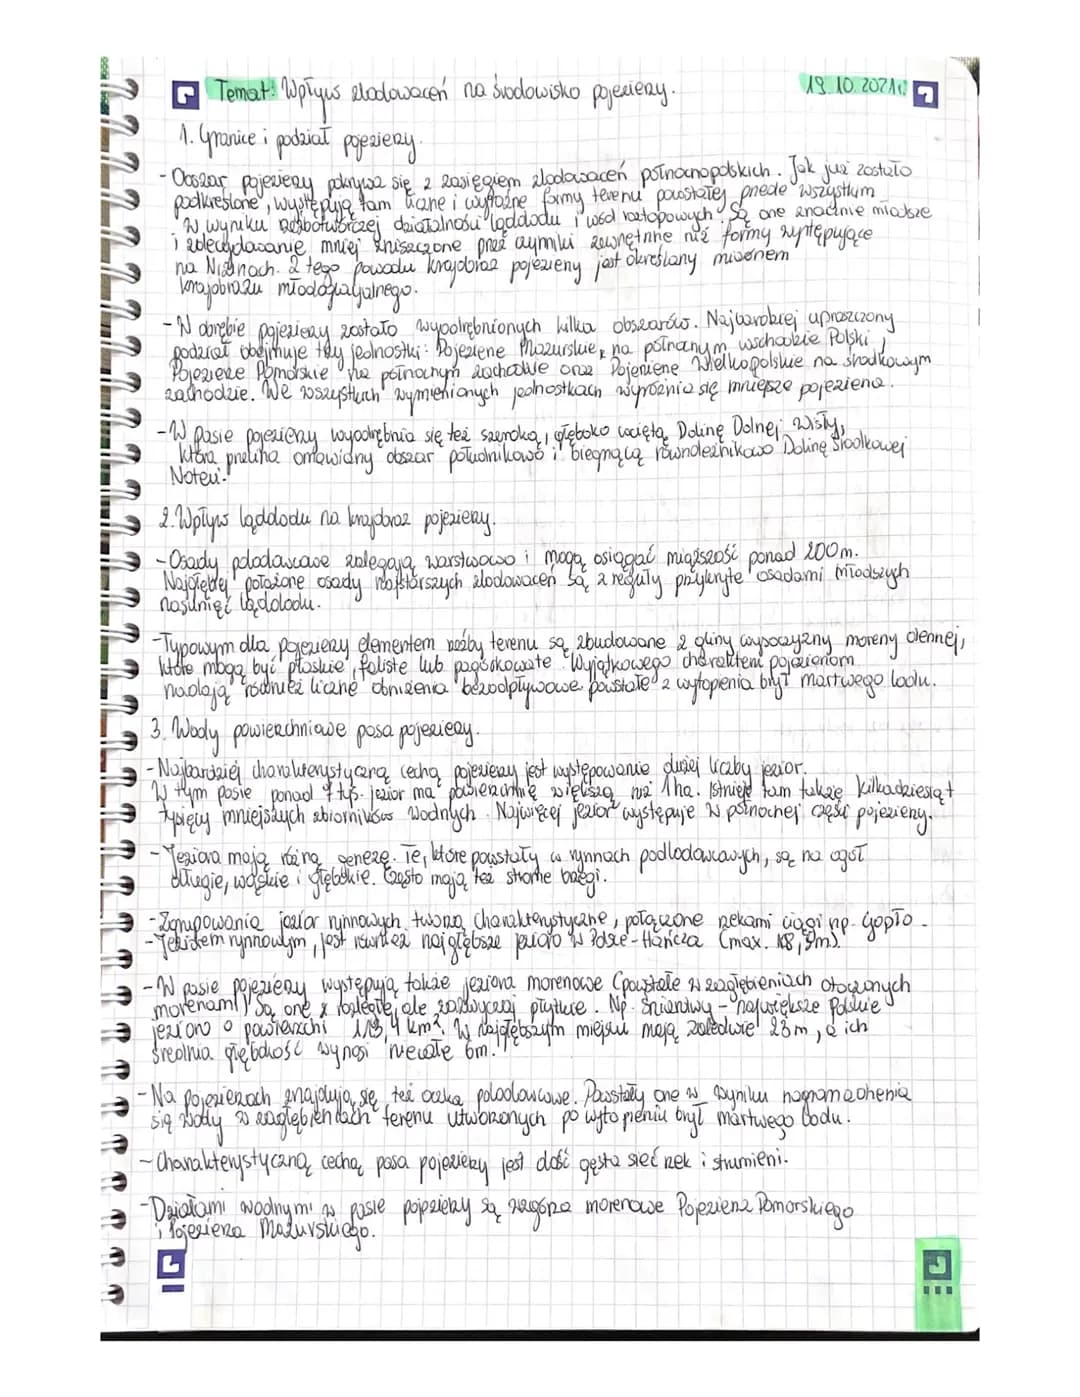 Temat: Wpływ zlodowaceń na środowisko pojezierzy. 19.10.2021r.
1. Granice i podział pojezierzy.
- Obszar pojezierzy pokrywa się z zasięgiem zlodowaceń północnopolskich. Jak już zostało
podkreślone, występują tam liczne i wyraźne formy terenu powstałej przede wszystkim
w wyniku rzeźbotwórczej działalności lądolodu i wód roztopowych. Są one znacznie młodsze
i zdecydowanie mniej zniszczone przez czynniki zewnętrzne niż formy występujące
na Nizinach. Z tego powodu krajobraz pojezierny jest określany mianem
krajobrazu młodoglacjalnego.
- W obrębie pojezierzy zostało wyodrębnionych kilka obszarów. Najbardziej uproszczony
podział obejmuje trzy jednostki: Pojezierze Mazurskie, na północnym wschodzie Polski,
Pojezierze Pomorskie na północnym zachodzie oraz Pojezierze Wielkopolskie na środkowym
zachodzie. We wszystkich wymienionych jednostkach wyróżnia się mniejsze pojezierza.
- W pasie pojezierzy wyodrębnia się też szeroką, głęboko wciętą Dolinę Dolnej Wisły,
która przecina omawiany obszar południkowo i biegnącą równoleżnikowo Dolinę Środkowej
Noteci.
2. Wpływ lądolodu na krajobraz pojezierzy.
- Osady polodowcowe zalegają warstwowo i mogą osiągać miąższość ponad 200m.
Najgłębiej położone osady najstarszych zlodowaceń są z reguły przykryte osadami młodszych
nasunięć lądolodu.
- Typowym dla pojezierzy elementem rzeźby terenu są zbudowane z gliny wysoczyzny moreny dennej,
które mogą być płaskie, faliste lub pagórkowate. Wyjątkowego charakteru pojezierzom
nadają również liczne obniżenia bezodpływowe powstałe z wytopienia brył martwego lodu.
3. Wody powierzchniowe pasa pojezierzy.
- Najbardziej charakterystyczną cechą pojezierzy jest występowanie dużej liczby jezior.
W tym pasie ponad 7 tyś. jezior ma powierzchnię większą niż 1ha. Istnieje tam także kilkadziesiąt
tysięcy mniejszych zbiorników wodnych. Najwięcej jezior występuje w północnej części pojezierzy.
- Jeziora mają różną genezę. Te, które powstały w rynnach podlodowcowych, są na ogół
długie, wąskie i głębokie. Często mają też strome brzegi.
- Zgrupowania jezior rynnowych tworzą charakterystyczne, połączone rzekami ciągi np. Gopło.
- Jeziorem rynnowym, jest również najgłębsze jezioro w Polsce - Hańcza (max. 108,5m).
- W pasie pojezierzy występują także jeziora morenowe (powstałe w zagłębieniach otoczonych
morenami) Są one rozległe, ale zazwyczaj płytkie. Np. Śniardwy - największe Polskie
jezioro o powierzchni 113,4 km². W najgłębszym miejscu mają zaledwie 23m, a ich
średnia głębokość wynosi niecałe 6m.
- Na pojezierzach znajdują się też oczka polodowcowe. Powstały one w wyniku nagromadzenia
się wody w zagłębieniach terenu utworzonych po wytopieniu brył martwego lodu.
- Charakterystyczną cechą pasa pojezierzy jest dość gęsta sieć rzek i strumieni.
- Działami wodnymi w pasie pojezierzy są wzgórza morenowe Pojezierza Pomorskiego
i Pojezierza Mazurskiego.